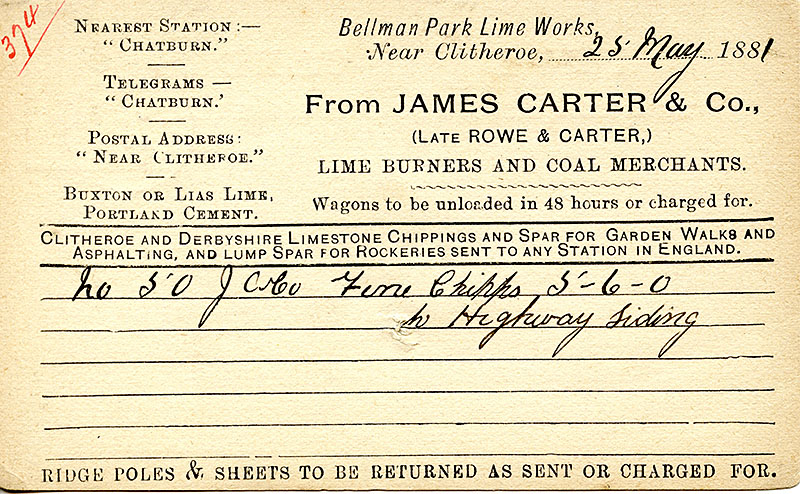 374
NEAREST STATION :—
" CHATBURN."
TELEGRAMS —
" CHATBURN.'
POSTAL ADDRESS:
" NEAR CLITHEROE."
BUXTON OR LIAS LIME,
PORTLAND CEMENT.
Bellman Park Lime Works,
Near Clitheroe, 25 May 1881
From JAMES CARTER & Co.,
(LATE ROWE & CARTER,)
LIME BURNERS AND COAL MERCHANTS.
Wagons to be unloaded in 48 hours or charged for.
CLITHEROE AND DERBYSHIRE LIMESTONE CHIPPINGS AND SPAR FOR GARDEN WALKS AND
ASPHALTING, AND LUMP SPAR FOR ROCKERIES SENT TO ANY STATION IN ENGLAND.
No 50 J C & Co Fine Chipps 5-6-0
to Highway Siding
RIDGE POLES & SHEETS TO BE RETURNED AS SENT OR CHARGED FOR.